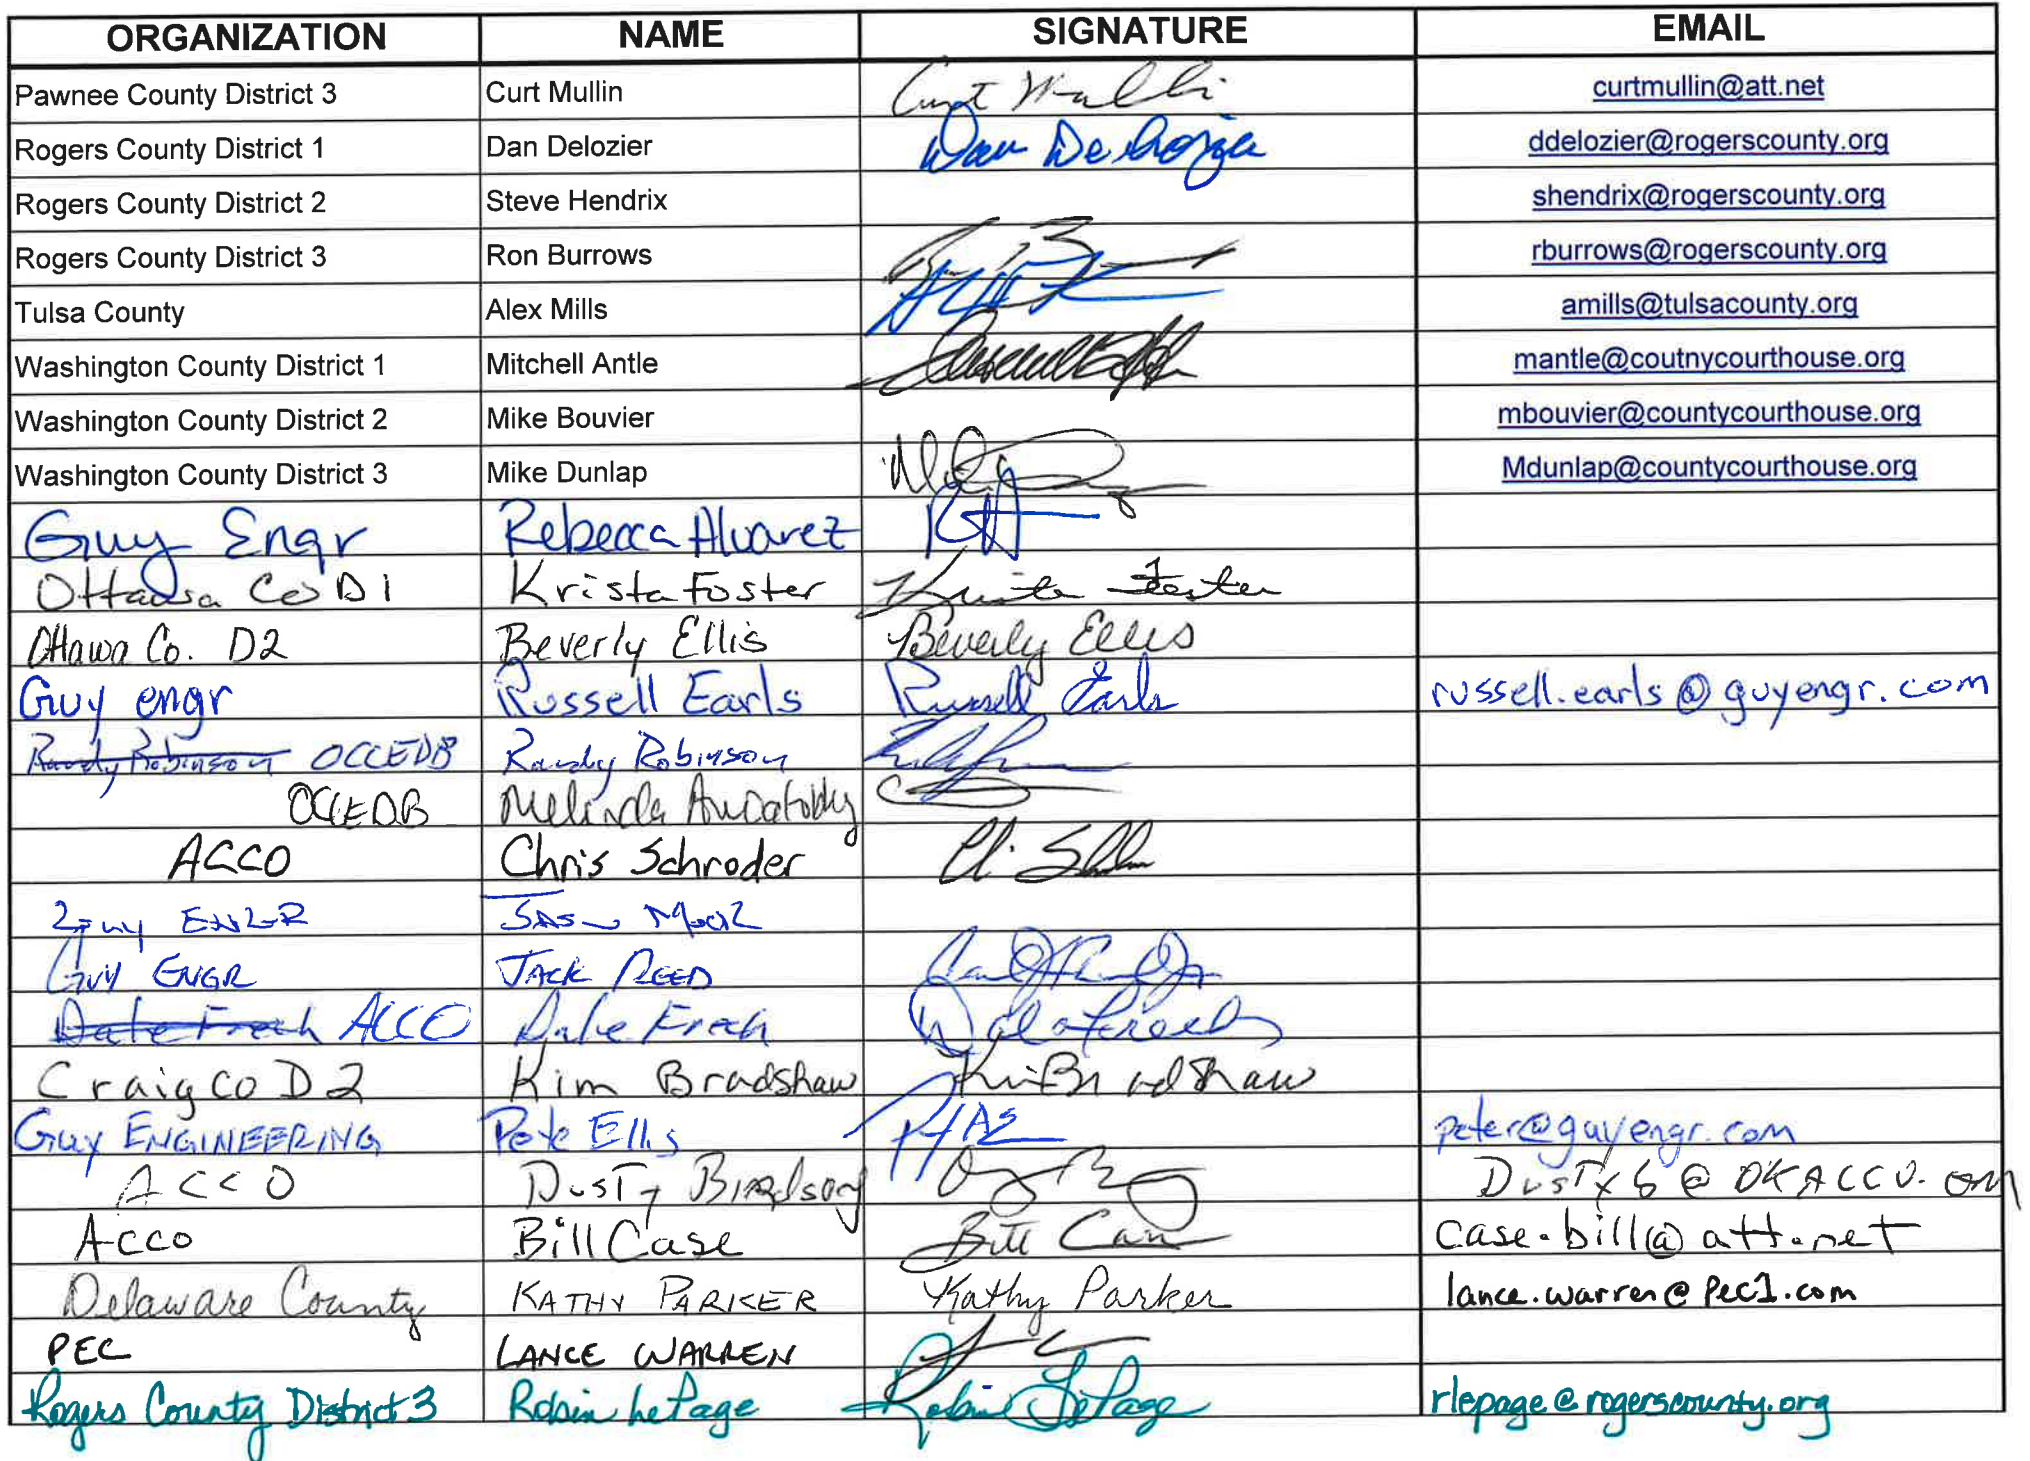 ORGANIZATION NAME SIGNATURE EMAIL
Pawnee County District 3 Curt Mullin Curt Mullin curtmullin@att.net
Rogers County District 1 Dan Delozier Dan Delozier ddelozier@rogerscounty.org
Rogers County District 2 Steve Hendrix shendrix@rogerscounty.org
Rogers County District 3 Ron Burrows rburrows@rogerscounty.org
Tulsa County Alex Mills amills@tulsacounty.org
Washington County District 1 Mitchell Antle mantle@coutnycourthouse.org
Washington County District 2 Mike Bouvier mbouvier@countycourthouse.org
Washington County District 3 Mike Dunlap Mdunlap@countycourthouse.org
Guy Engr Rebecca Alvarez
Ottawa Co D1 Krista Foster Krista Foster
Ottawa Co. D2 Beverly Ellis Beverly Ellis
Guy engr Russell Earls Russell Earls russell.earls@guyengr.com
Randy Robinson OCCEDB Randy Robinson
OCCEDB Melinda
ACCO Chris Schroder
Guy ENGR
Guy ENGR JACK REED
Dale Frech ACCO Dale Frech Dale Frech
Craig CO D2 Kim Bradshaw Kim Bradshaw
Guy ENGINEERING Pete Ellis peter@guyengr.com
ACCO Dusty Birdsong
ACCO Bill Case Bill Case case.bill@att.net
Delaware County KATHY PARKER Kathy Parker lance.warren@pec1.com
PEC LANCE WARREN
Rogers County District 3 Robin LePage Robin LePage rlepage@rogerscounty.org